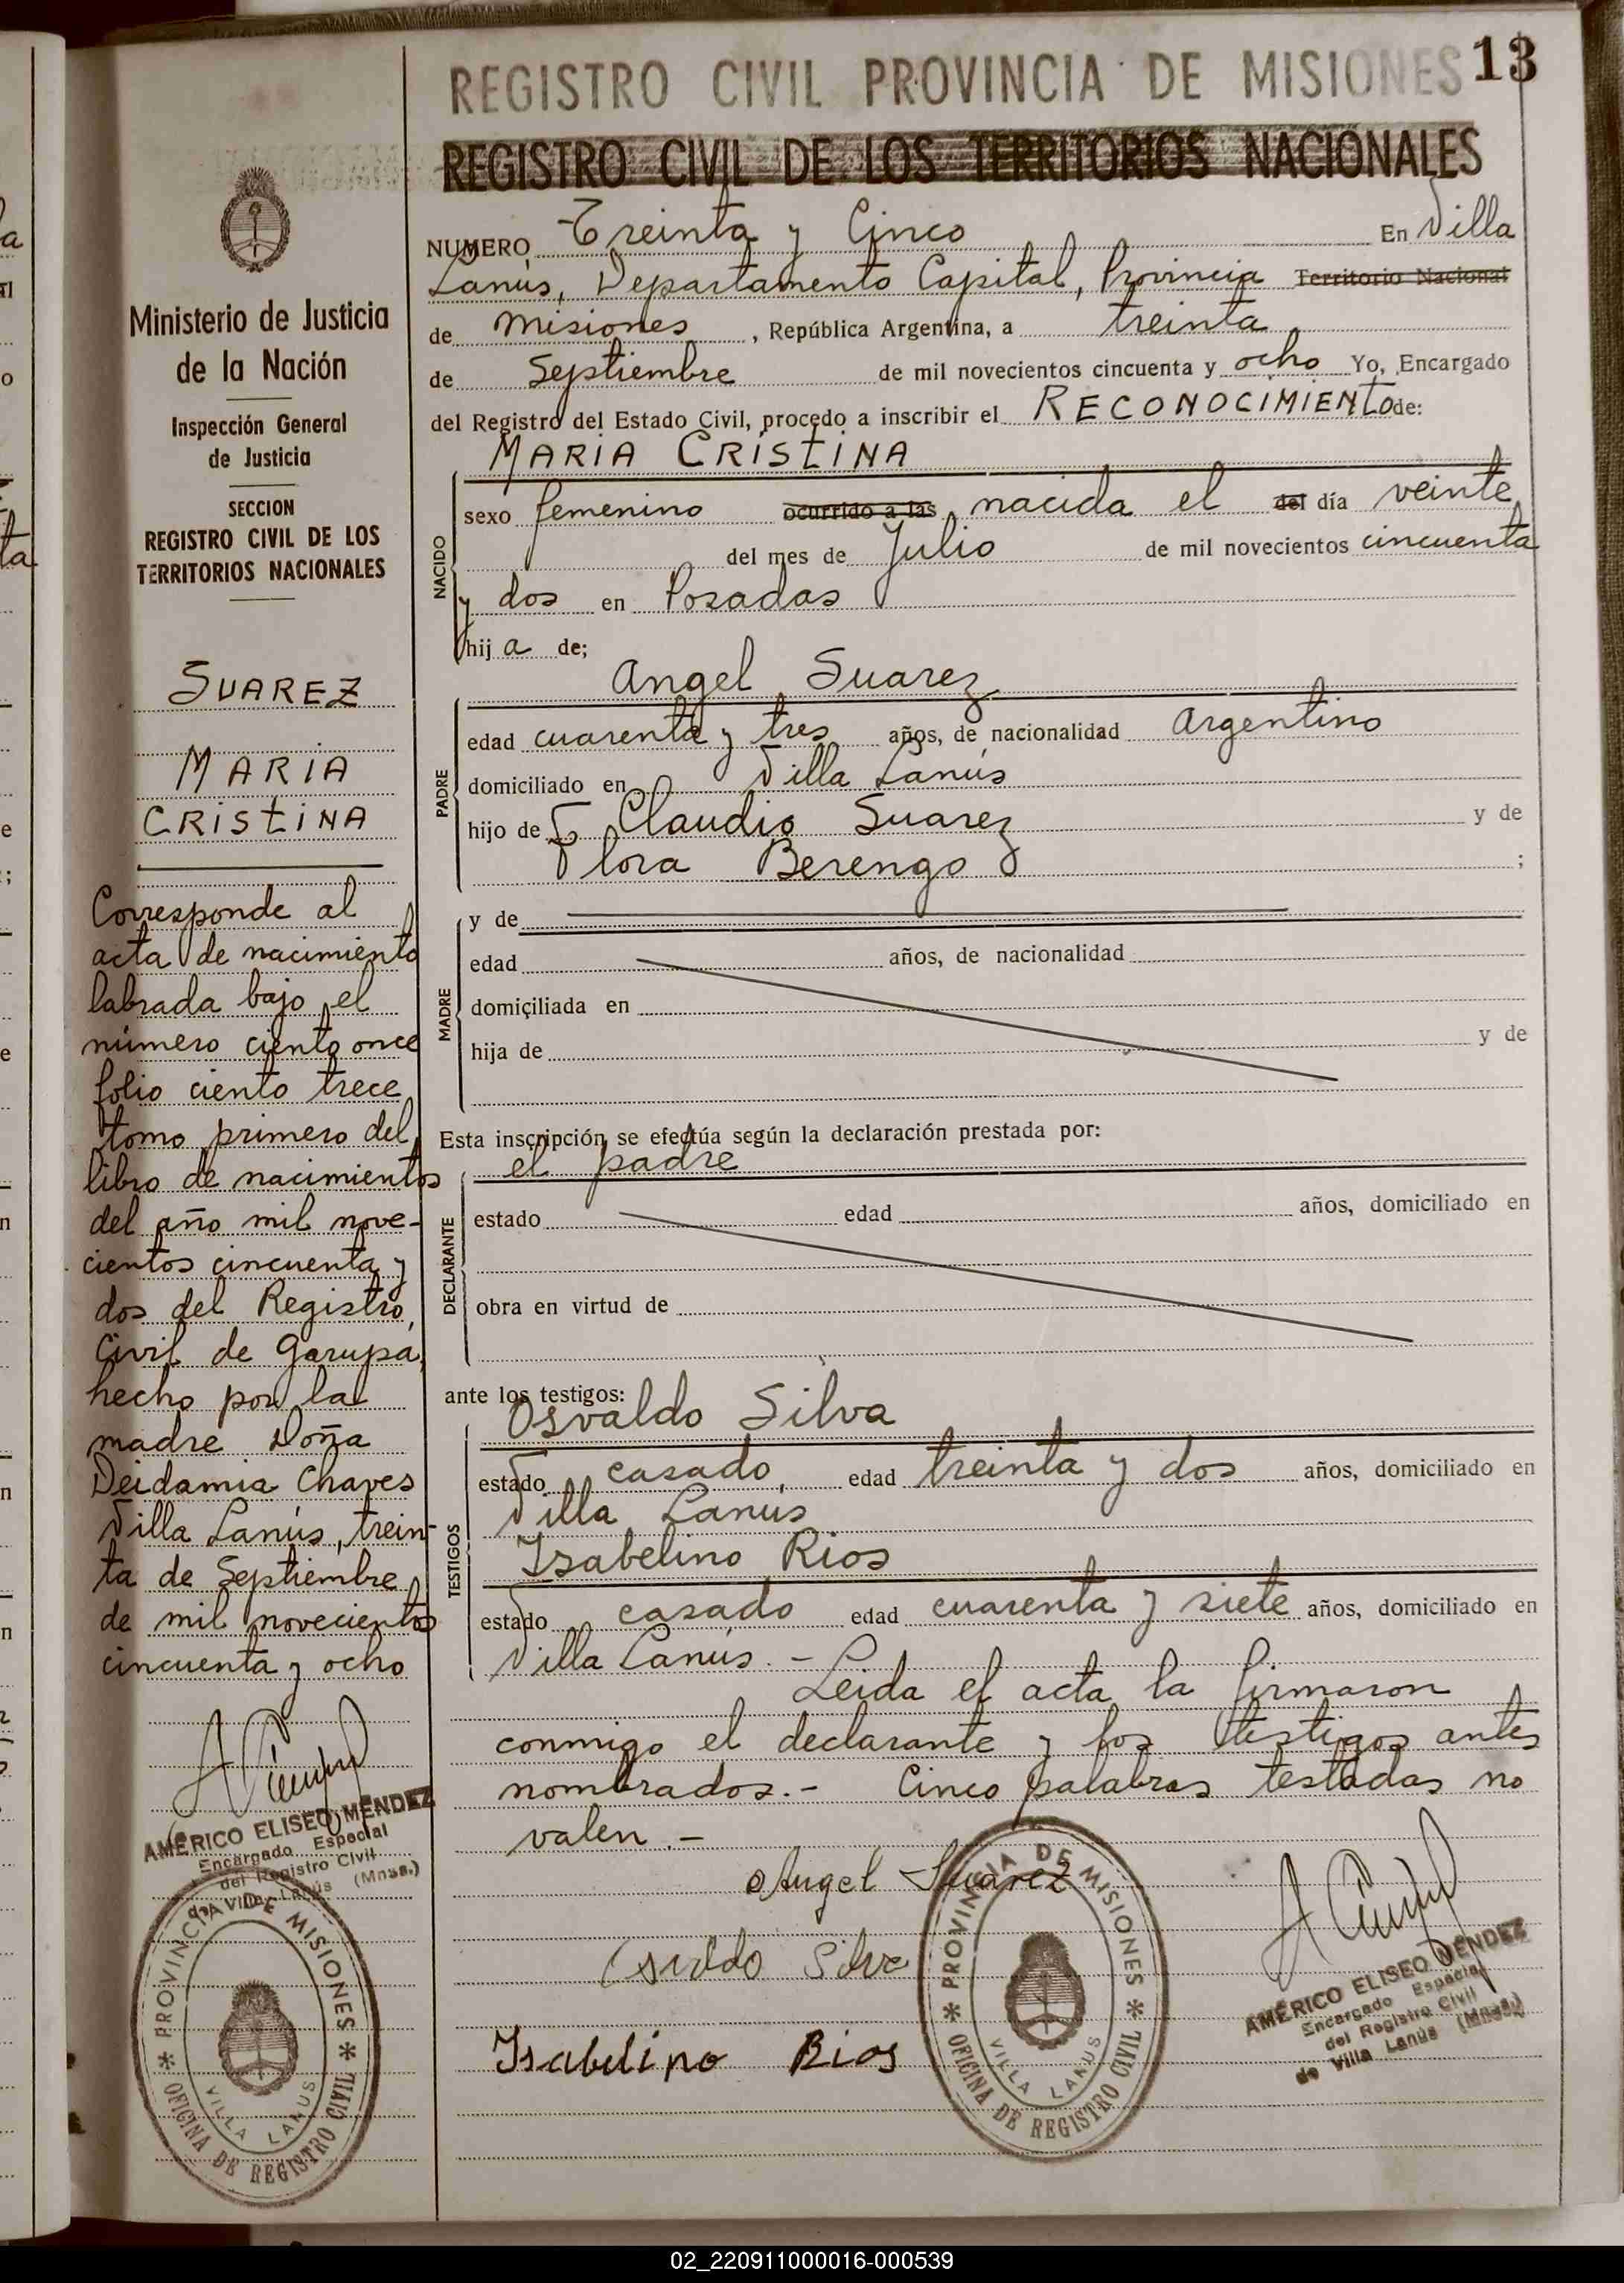 13
REGISTRO CIVIL PROVINCIA DE MISIONES
REGISTRO CIVIL DE LOS TERRITORIOS NACIONALES
Ministerio de Justicia
de la Nación
Inspección General
de Justicia
SECCION
REGISTRO CIVIL DE LOS
TERRITORIOS NACIONALES
SUAREZ
MARIA
CRISTINA
Corresponde al
acta de nacimiento
labrada bajo el
número ciento once
folio ciento trece
tomo primero del
libro de nacimientos
del año mil nove-
cientos cincuenta y
dos del Registro
Civil de Garupá,
hecho por la
madre Doña
Deidamia Chaves
Villa Lanús, trein-
ta de Septiembre
de mil novecientos
cincuenta y ocho
AMÉRICO ELISEO MÉNDEZ
Encargado Especial
del Registro Civil
de Villa Lanús (Mnes.)
PROVINCIA DE MISIONES
OFICINA DE REGISTRO CIVIL
VILLA LANUS
NUMERO Treinta y Cinco En Villa
Lanús, Departamento Capital, Provincia Territorio Nacional
de Misiones, República Argentina, a treinta
de Septiembre de mil novecientos cincuenta y ocho Yo, Encargado
del Registro del Estado Civil, procedo a inscribir el RECONOCIMIENTO de:
MARIA CRISTINA
NACIDO
sexo femenino ocurrido a las nacida el del día veinte
del mes de Julio de mil novecientos cincuenta
y dos en Posadas
hija de;
Angel Suarez
PADRE
edad cuarenta y tres años, de nacionalidad Argentino
domiciliado en Villa Lanús
hijo de Claudio Suarez y de
Flora Berengo ;
MADRE
y de
edad años, de nacionalidad
domiciliada en
hija de y de
Esta inscripción se efectúa según la declaración prestada por:
el padre
DECLARANTE
estado edad años, domiciliado en
obra en virtud de
ante los testigos:
Osvaldo Silva
TESTIGOS
estado casado edad treinta y dos años, domiciliado en
Villa Lanús
Isabelino Rios
estado casado edad cuarenta y siete años, domiciliado en
Villa Lanús.-
Leida el acta la firmaron
conmigo el declarante y los testigos antes
nombrados.- Cinco palabras testadas no
valen.-
Angel Suarez
Silva
Isabelino Rios
PROVINCIA DE MISIONES
OFICINA DE REGISTRO CIVIL
VILLA LANUS
AMÉRICO ELISEO MÉNDEZ
Encargado Especial
del Registro Civil
de Villa Lanús (Mnes.)
02_220911000016-000539